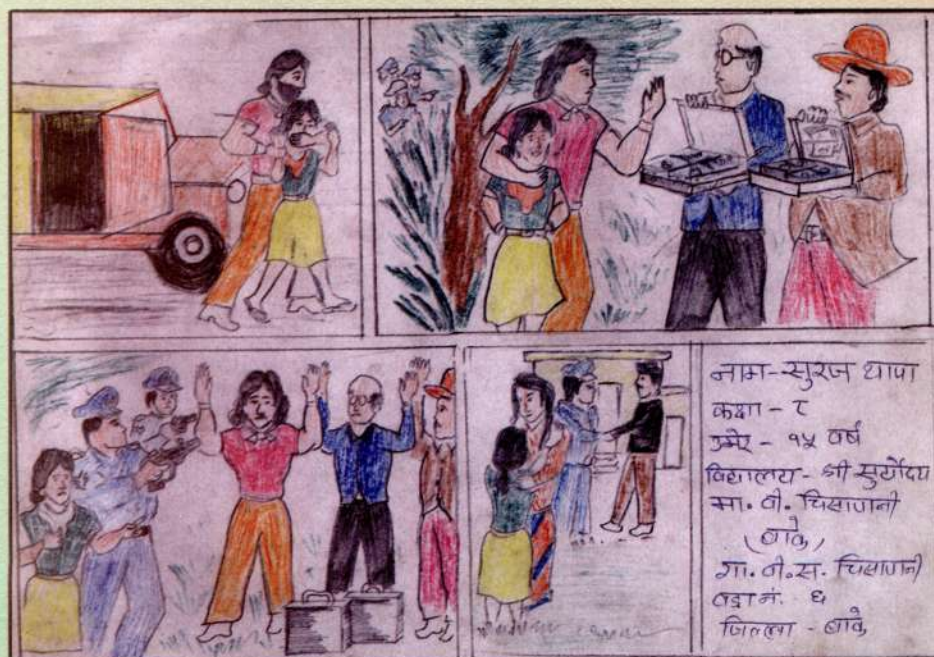 नाम-सुरज थापा
कक्षा - ८
उमेर - १५ वर्ष
विद्यालय - श्री सुर्योदय
मा. वी. चिसापानी
(बाके)
गा. वी. स. चिसापानी
वडा नं. ६
जिल्ला - बाके